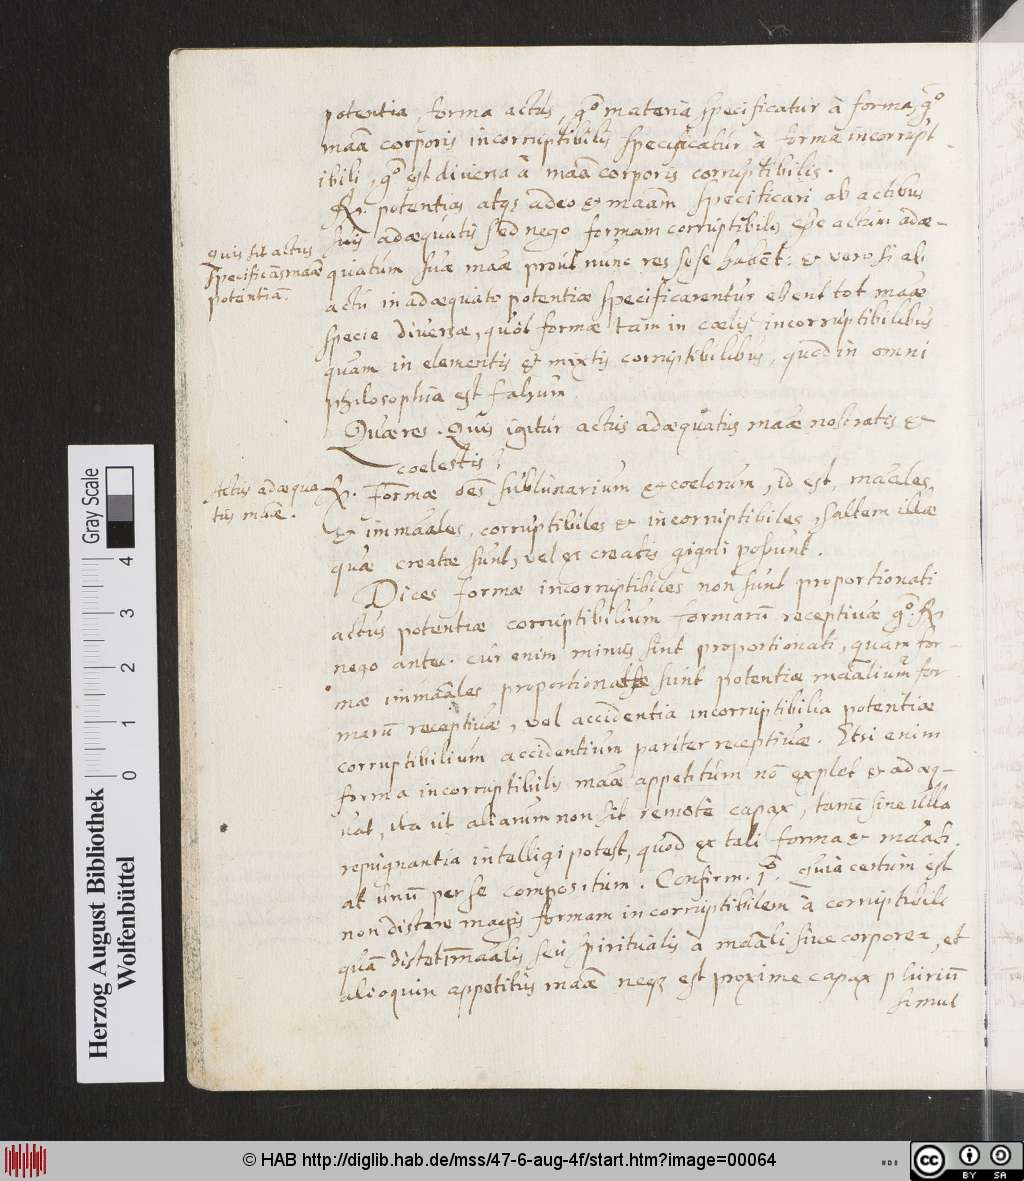 potentia, forma actus, g͞o materia specificatur à forma, g͞o
maã corporis incorruptibilis specificatur à forma incorrupt-
ibili, g͞o est diversa à maã corporis corruptibilis.
R. potentias atq; adeo et maãm specificari ab actibus
suis adæquatis sed nego formam corruptibilis esse actum adæ-
quatum suæ maæ prout nunc res sese habent: et vero si ab
actu inadæquato potentiæ specificarentur essent tot maæ
specie diversæ, quot formæ tam in cœlis incorruptibilibus
quam in elementis et mixtis corruptibilibus, quod in omni
philosophia est falsum.
Quæres. Quis igitur actus adæquatus maæ nostratis et
coelestis?
R. Formæ oẽs sublunarium et coelorum, id est, maãles
et immaãles, corruptibiles et incorruptibiles, saltem illæ
quæ creatæ sunt, vel ex creatis gigni possunt.
Dices formæ incorruptibiles non sunt proportionati
actus potentiæ corruptibilium formarũ receptivæ g͞o. R.
nego antec. cur enim minus sint proportionati, quam for-
mæ immaãles proportionatæ sunt potentiæ maãlium for
marũ receptivæ, vel accidentia incorruptibilia potentiæ
corruptibilium accidentium pariter receptivæ. Etsi enim
forma incorruptibilis maæ appetitum nõ explet et adæq-
uat, ita ut aliarum non sit remotè capax, tamẽ sine ulla
repugnantia intelligi potest, quod ex tali forma et maã fi
at unũ per se compositum. Confirm. 1o. Quia certum est
non distare magis formam incorruptibilem à corruptibili
quã distet immaãlis seu spiritualis à maãli sive corporea, et
alioquin appetitus maæ neq; est proxime capax pluriũ
simul
quis sit actus
specificãs maæ
potentiã.
Actus adæqua
tus maæ.
Herzog August Bibliothek
Wolfenbüttel
0 1 2 3 4
Gray Scale
© HAB http://diglib.hab.de/mss/47-6-aug-4f/start.htm?image=00064
HAB
cc BY SA